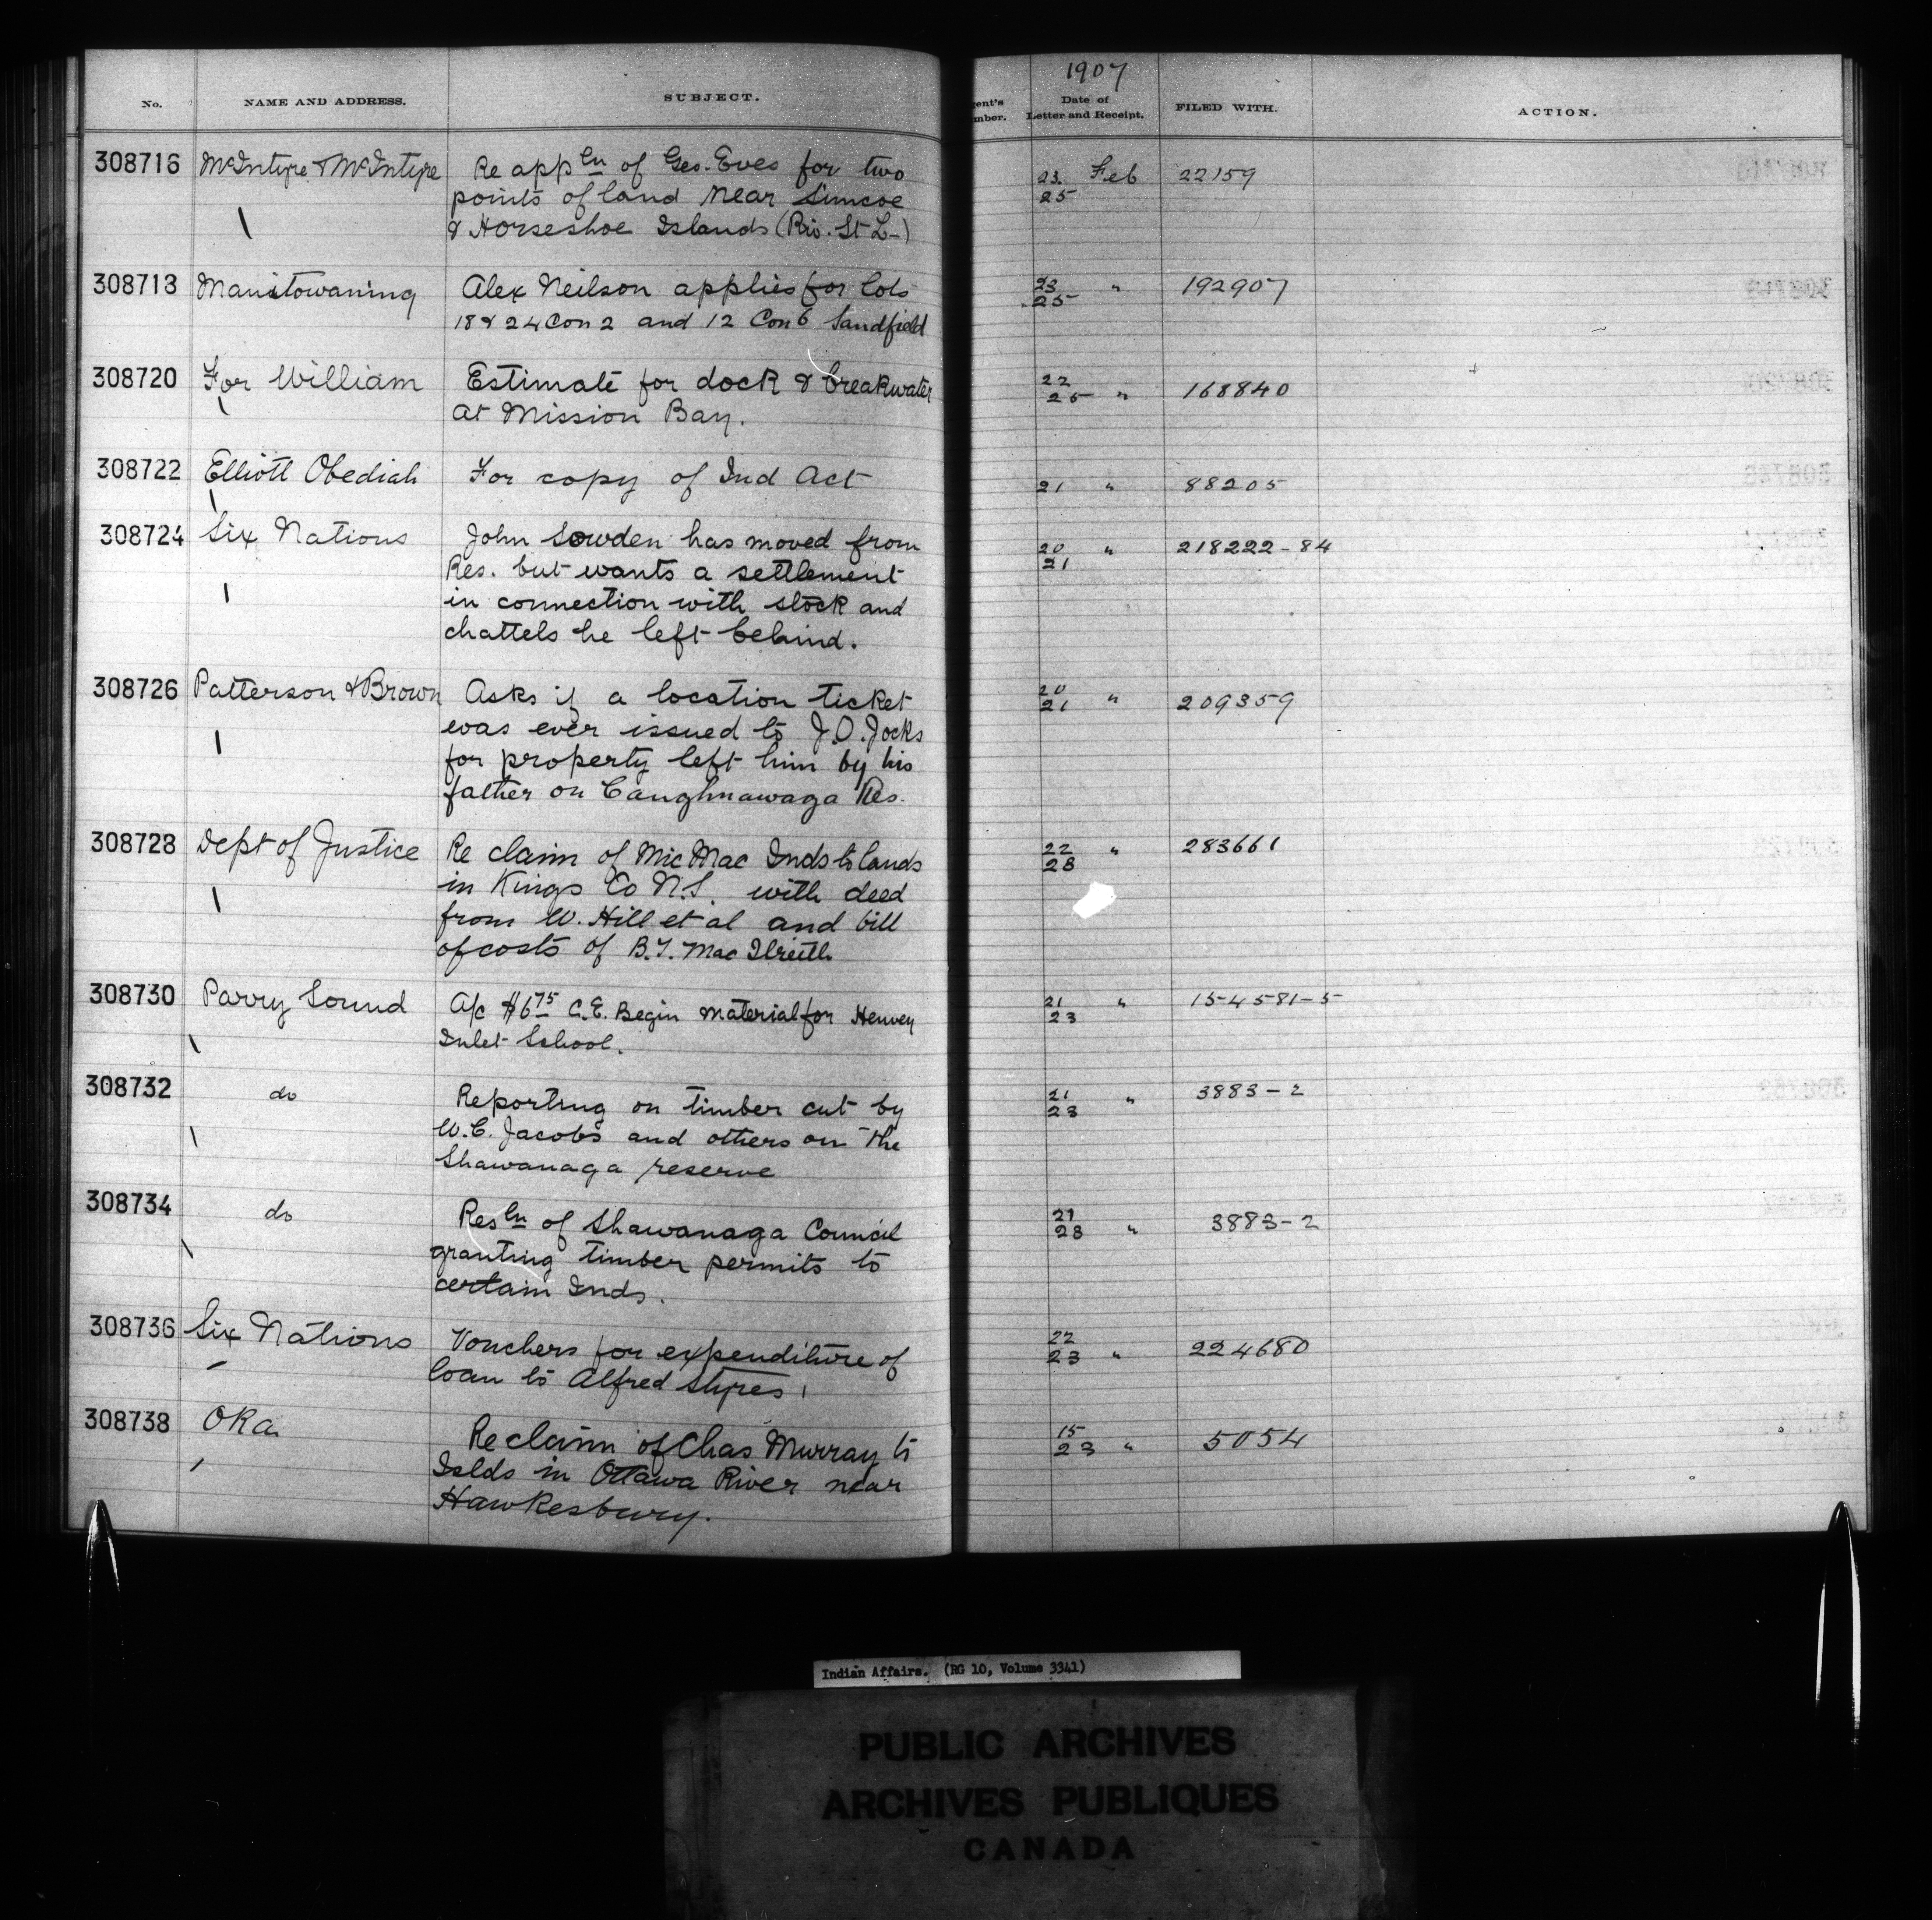 1907
No. NAME AND ADDRESS. SUBJECT. ent's mber. Date of Letter and Receipt. FILED WITH. ACTION.
308716 McIntyre & McIntyre Re appln of Geo. Eves for two 23. Feb 22159
points of land near Simcoe 25
& Horseshoe Islands (Riv. St L-)
308718 Manitowaning Alex Neilson applies for lots 23 " 192907
18 & 24 Con 2 and 12 Con 6 Sandfield 25
308720 For William Estimate for dock & breakwater 22 168840
at Mission Bay. 25 "
308722 Elliott Obediah For copy of Ind Act 21 " 88205
308724 Six Nations John Sowden has moved from 20 " 218222-84
Res. but wants a settlement 21
in connection with stock and
chattels he left behind.
308726 Patterson & Brown Asks if a location ticket 20 " 209359
was ever issued to J.O. Jocks 21
for property left him by his
father on Caughnawaga Res.
308728 Dept of Justice Re claim of Mic Mac Inds to lands 22 " 283661
in Kings Co N.S. with deed 23
from W. Hill et al and bill
of costs of
308730 Parry Sound A/c $6 75 C.E. Begin material for Henvey 21 " 154581-5
Inlet School. 23
308732 do Reporting on timber cut by 21 " 3883-2
W.C. Jacobs and others on the 23
Shawanaga reserve
308734 do Resln of Shawanaga Council 21 3883-2
granting timber permits to 23 "
certain Inds.
308736 Six Nations Vouchers for expenditure of 22 224680
loan to Alfred Styres, 23 "
308738 Oka Re claim of Chas Murray to 15 5054
Islds in Ottawa River near 23 "
Hawkesbury.
Indian Affairs. (RG 10, Volume 3341)
PUBLIC ARCHIVES
ARCHIVES PUBLIQUES
CANADA